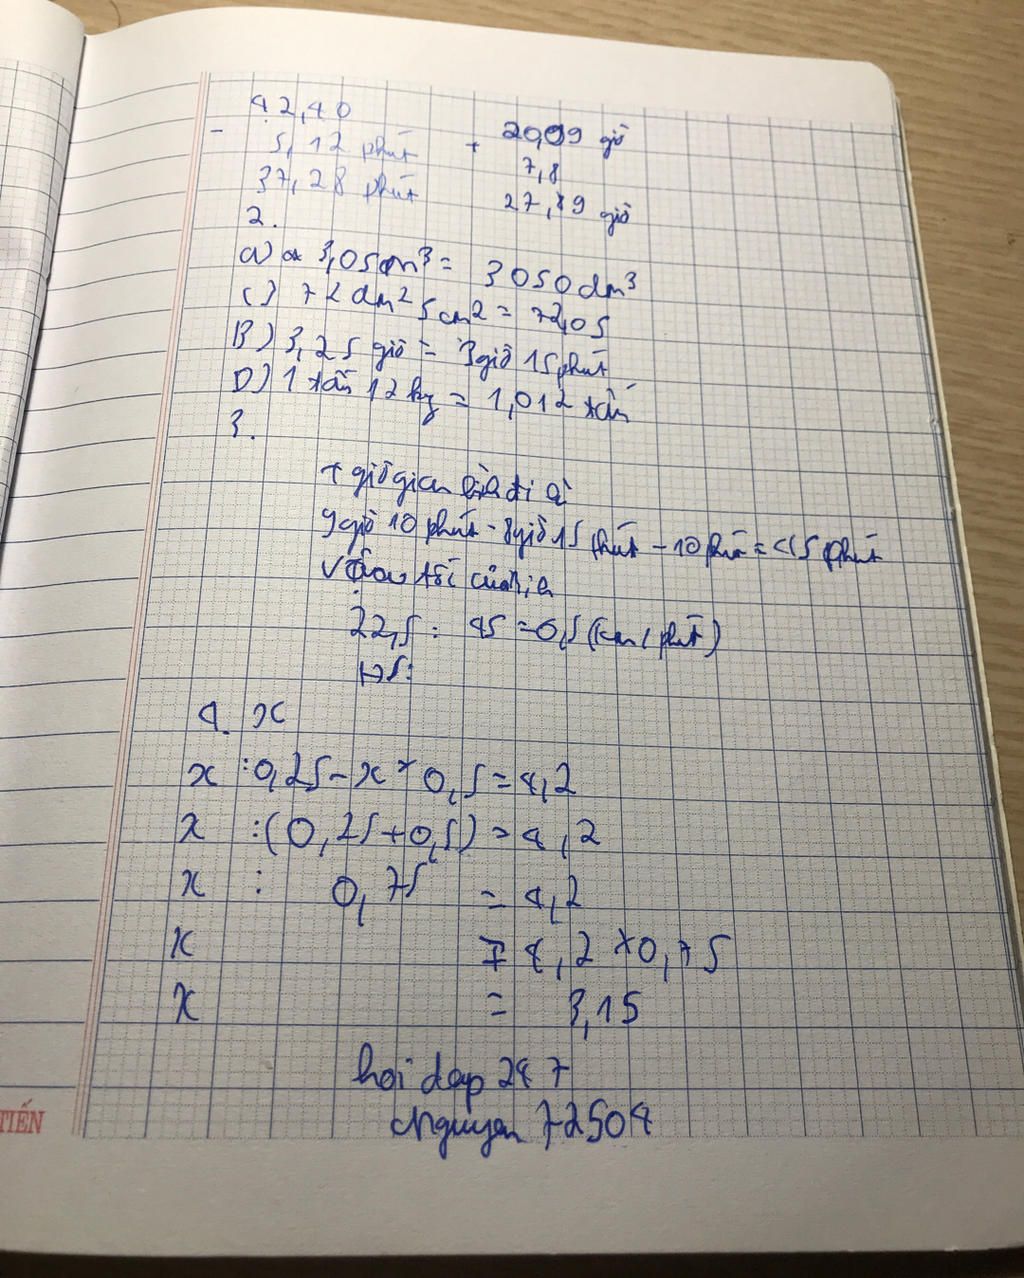 42,40
-
5,12 phút
37,28 phút
+ 20,09 giờ
7,8
27,89 giờ
2.
a) 3,05m³ = 3050dm³
C) 72dm² 5cm² = 72,05
B) 3,25 giờ = 3giờ 15phút
D) 1 tấn 12kg = 1,012 tấn
3.
9giờ 10 phút - 8giờ 15 phút - 10 phút = 45 phút
22,5 : 45 = 0,5 (km/phút)
ĐS:
4. x
x : 0,25 - x * 0,5 = 4,2
x : (0,25+0,5) = 4,2
x : 0,75 = 4,2
x = 4,2 * 0,75
x = 3,15
hoi dap 247
Nguyen 72504
TIẾN